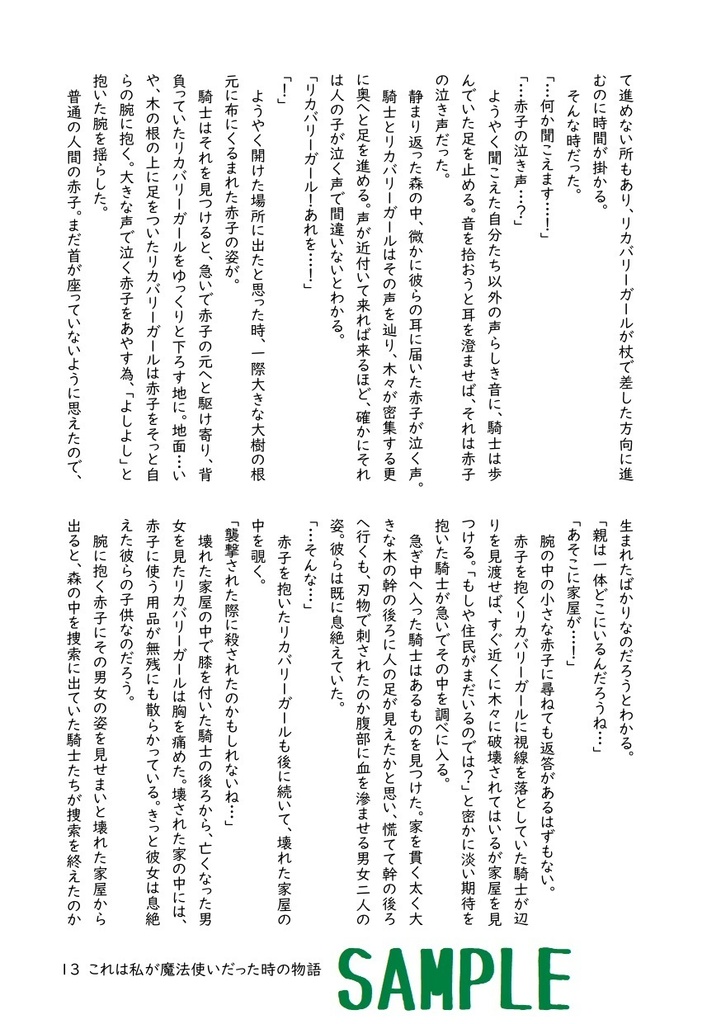 て進めない所もあり、リカバリーガールが杖で差した方向に進
むのに時間が掛かる。
そんな時だった。
「…何か聞こえます…！」
「…赤子の泣き声…？」
ようやく聞こえた自分たち以外の声らしき音に、騎士は歩
んでいた足を止める。音を拾おうと耳を澄ませば、それは赤子
の泣き声だった。
静まり返った森の中、微かに彼らの耳に届いた赤子が泣く声。
騎士とリカバリーガールはその声を辿り、木々が密集する更
に奥へと足を進める。声が近付いて来れば来るほど、確かにそれ
は人の子が泣く声で間違いないとわかる。
「リカバリーガール！あれを…！」
「！」
ようやく開けた場所に出たと思った時、一際大きな大樹の根
元に布にくるまれた赤子の姿が。
騎士はそれを見つけると、急いで赤子の元へと駆け寄り、背
負っていたリカバリーガールをゆっくりと下ろす地に。地面…い
や、木の根の上に足をついたリカバリーガールは赤子をそっと自
らの腕に抱く。大きな声で泣く赤子をあやす為、「よしよし」と
抱いた腕を揺らした。
普通の人間の赤子。まだ首が座っていないように思えたので、
生まれたばかりなのだろうとわかる。
「親は一体どこにいるんだろうね…」
「あそこに家屋が…！」
腕の中の小さな赤子に尋ねても返答があるはずもない。
赤子を抱くリカバリーガールに視線を落としていた騎士が辺
りを見渡せば、すぐ近くに木々に破壊されてはいるが家屋を見
つける。「もしや住民がまだいるのでは？」と密かに淡い期待を
抱いた騎士が急いでその中を調べに入る。
急ぎ中へ入った騎士はあるものを見つけた。家を貫く太く大
きな木の幹の後ろに人の足が見えたかと思い、慌てて幹の後ろ
へ行くも、刃物で刺されたのか腹部に血を滲ませる男女二人の
姿。彼らは既に息絶えていた。
「…そんな…」
赤子を抱いたリカバリーガールも後に続いて、壊れた家屋の
中を覗く。
「襲撃された際に殺されたのかもしれないね…」
壊れた家屋の中で膝を付いた騎士の後ろから、亡くなった男
女を見たリカバリーガールは胸を痛めた。壊された家の中には、
赤子に使う用品が無残にも散らかっている。きっと彼女は息絶
えた彼らの子供なのだろう。
腕に抱く赤子にその男女の姿を見せまいと壊れた家屋から
出ると、森の中を捜索に出ていた騎士たちが捜索を終えたのか
13 これは私が魔法使いだった時の物語
SAMPLE